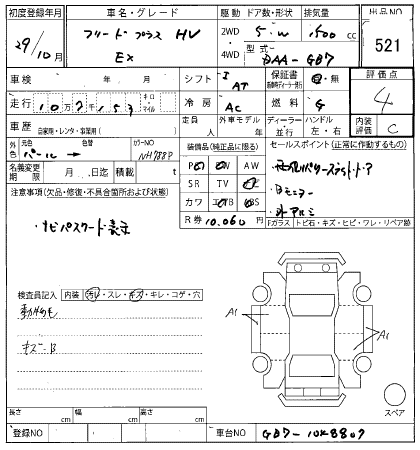 初度登録年月 車名・グレード 駆動 ドア数・形状 排気量 出品NO
29/10月 フリードプラス HV 2WD 5.W 1500 cc 521
EX 4WD 型式 DAA-GB7
車検 年 月 シフト I AT 保証書 有・無 評価点
走行 10万7千153 キロ・マイル 冷房 AC 燃料 G 4
車歴 自家用・レンタ・事業用( ) 定員 人 外車モデル 年 ディーラー 並行 ハンドル 左・右 内装評価 C
外色 元色 パール → カラーNO NH788P 装備品(純正品に限る) セールスポイント(正常に動作するもの)
名義変更期限 月 日迄 積載量 t PS PW AW
注意事項(欠品・修復・不具合箇所および状態) SR TV
カワ ABS 外アルミ
ナビパスワード表示 R券 10.060円 Fガラス トビ石・キズ・ヒビ・ワレ・リペア跡
検査員記入 内装 汚れ・スレ・キズ・キレ・コゲ・穴
A1 A1
キズ B
スペア
長さ cm 幅 cm 高さ cm
登録NO 車台NO GB7-1048807